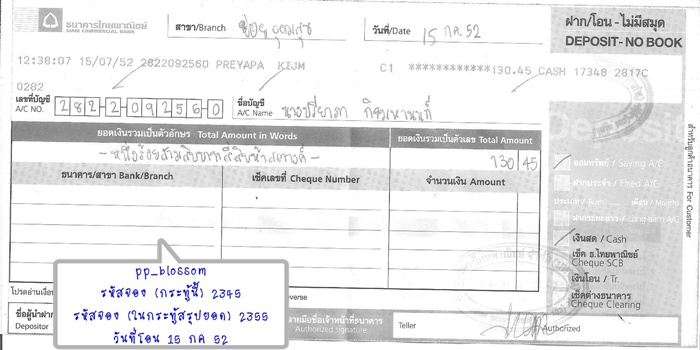 ธนาคารไทยพาณิชย์
SIAM COMMERCIAL BANK
สาขา/Branch
วันที่/Date 15 กค. 52
ฝาก/โอน - ไม่มีสมุด
DEPOSIT- NO BOOK
12:38:07 15/07/52 2822092560 PREYAPA KIJM C1 ************130.45 CASH 17348 2817C
0282
เลขที่บัญชี
A/C NO. 282-2-09256-0
ชื่อบัญชี
A/C Name
ยอดเงินรวมเป็นตัวอักษร Total Amount in Words
ยอดเงินรวมเป็นตัวเลข Total Amount
- หนึ่งร้อยสามสิบบาทสี่สิบห้าสตางค์ -
130 45
ธนาคาร/สาขา Bank/Branch
เช็คเลขที่ Cheque Number
จำนวนเงิน Amount
ออมทรัพย์ / Saving A/C
ฝากประจำ / Fixed A/C
เงินสด / Cash
เช็ค ธ.ไทยพาณิชย์
Cheque SCB
เงินโอน / Tr.
เช็คต่างธนาคาร
Cheque Clearing
สำหรับลูกค้าธนาคาร For Customer
pp_blossom
รหัสจอง (กระทู้นี้) 2345
รหัสจอง (ในกระทู้สรุปยอด) 2355
วันที่โอน 15 กค 52
โปรดอ่านเงื่อน
verse
ชื่อผู้นำฝาก
Depositor
ลายมือชื่อเจ้าหน้าที่ธนาคาร
Authorized signature
Teller
Authorized